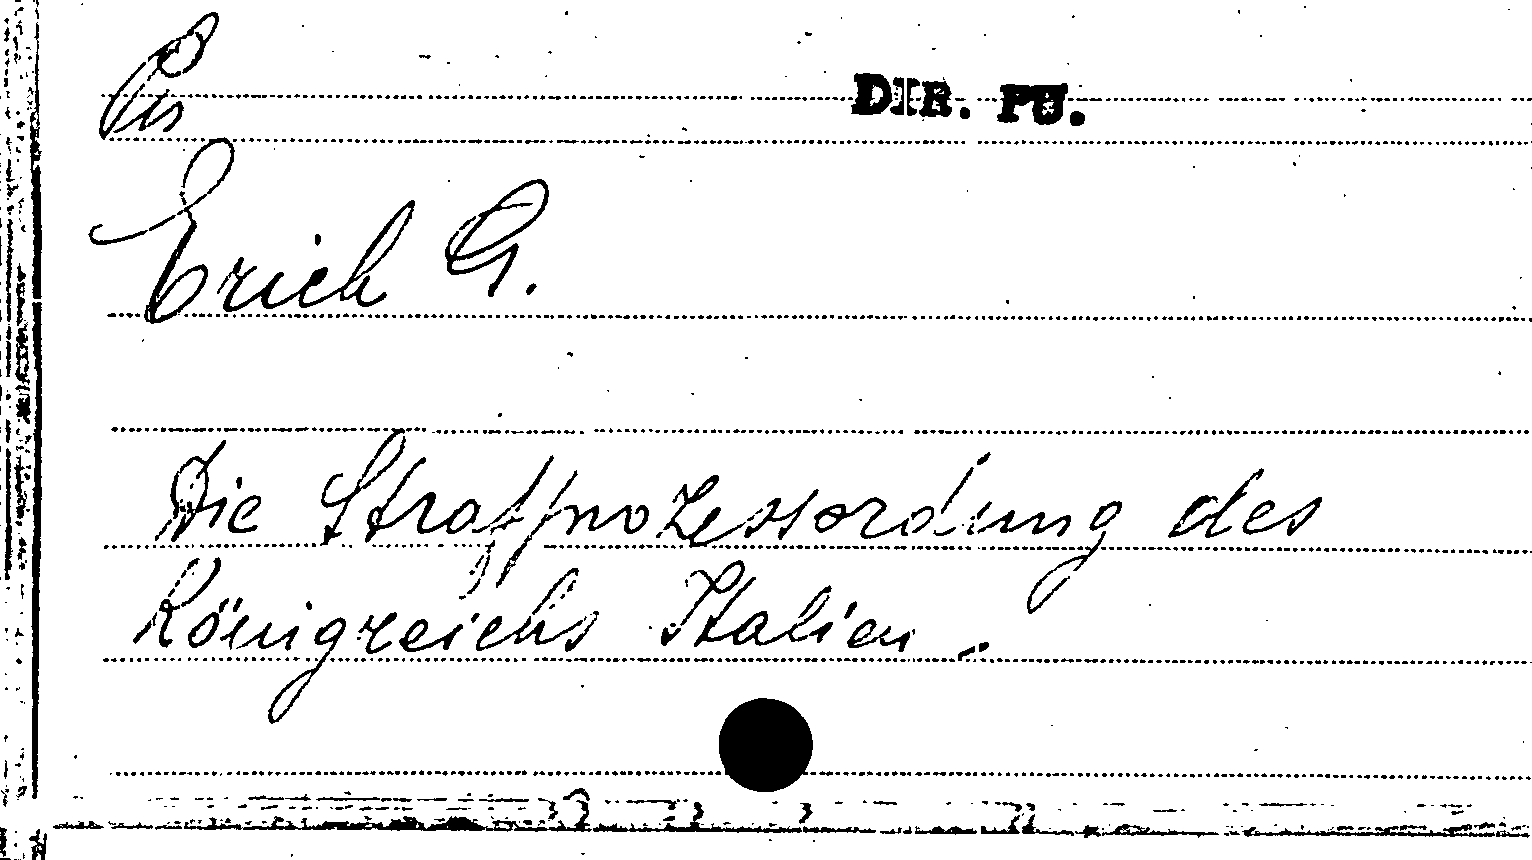 DIR. PU.
Erich G.
Die Strafprozessordung des
Königreichs Italien.